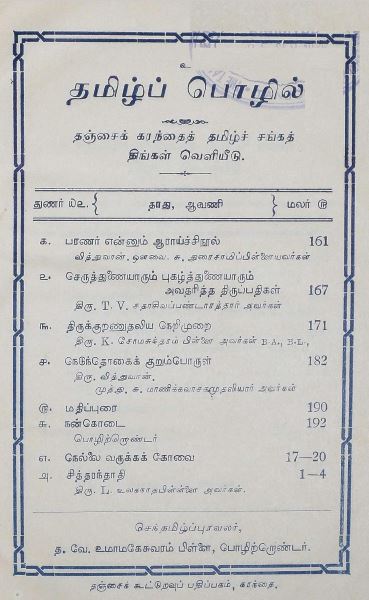 உ
தமிழ்ப் பொழில்
தஞ்சைக் கரந்தைத் தமிழ்ச் சங்கத்
திங்கள் வெளியீடு.
துணர் ௰௨ { தாது, ஆவணி } மலர் ௫
௧. பரணர் என்னும் ஆராய்ச்சிநூல் 161
வித்துவான், ஔவை. சு. துரைசாமிப்பிள்ளையவர்கள்
௨. செருத்துணையாரும் புகழ்த்துணையாரும்
அவதரித்த திருப்பதிகள் 167
திரு. T. V. சதாசிவப்பண்டாரத்தார் அவர்கள்
௩. திருக்குறணுதலிய நெறிமுறை 171
திரு. K. சோமசுந்தரம் பிள்ளை அவர்கள் B.A., B.L.,
௪. நெடுந்தொகைக் குறும்பொருள் 182
திரு. வித்துவான்,
முத்து. சு. மாணிக்கவாசகமுதலியார் அவர்கள்
௫. மதிப்புரை 190
௬. நன்கொடை 192
பொழிற்றொண்டர்
௭. நெல்லை வருக்கக் கோவை 17—20
௮. சித்தாந்தாதி 1—4
திரு. L. உலகநாதபிள்ளை அவர்கள்.
செந்தமிழ்ப்புரவலர்,
த. வே. உமாமகேசுவரம் பிள்ளை, பொழிற்றொண்டர்.
தஞ்சைக் கூட்டுறவுப் பதிப்பகம், கரந்தை.